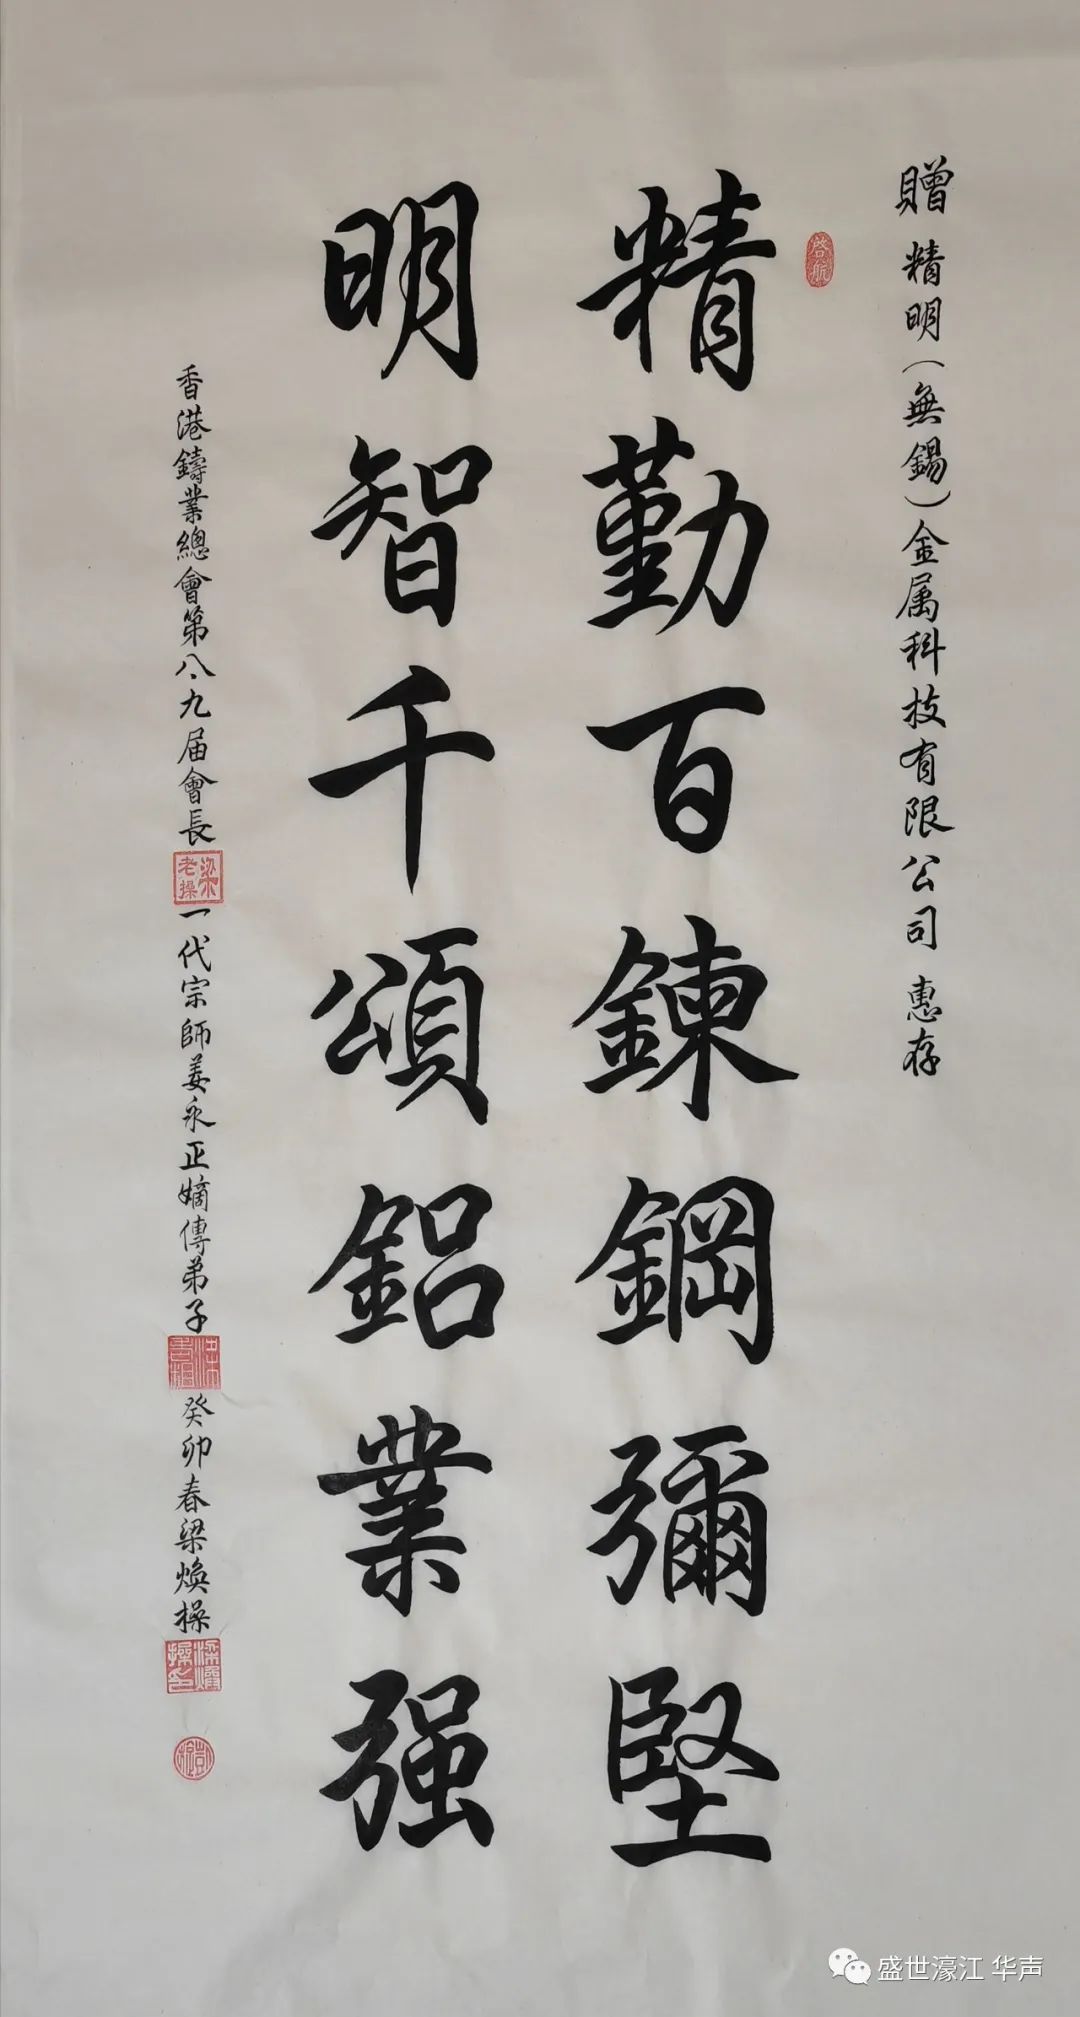 贈 精明（無錫）金属科技有限公司 惠存
啓航
精勤百鍊鋼彌堅
明智千頌鋁業强
香港鑄業總會第八、九届會長
梁老操
一代宗師姜永正嫡傳弟子
癸卯春梁煥操
盛世濠江 华声